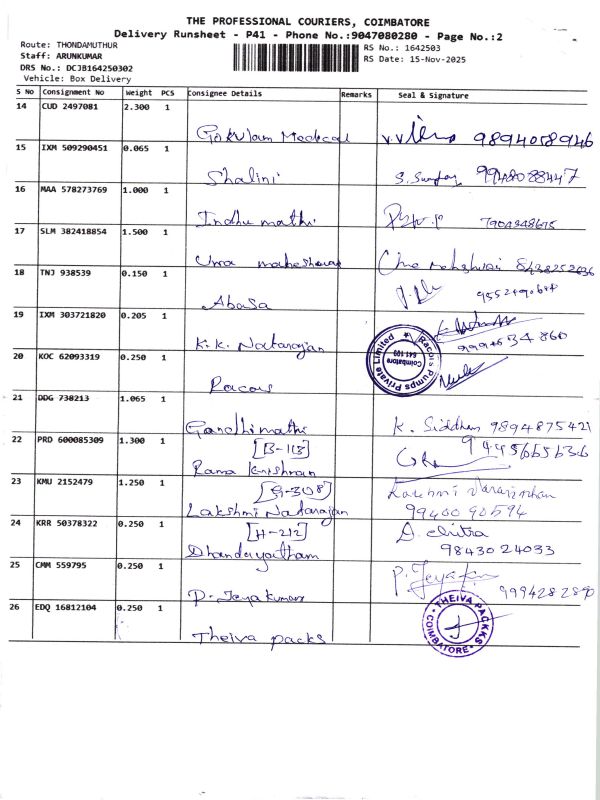 THE PROFESSIONAL COURIERS, COIMBATORE
Delivery Runsheet - P41 - Phone No.:9047080280 - Page No.:2
Route: THONDAMUTHUR
Staff: ARUNKUMAR
DRS No.: DCJB164250302
Vehicle: Box Delivery
RS No.: 1642503
RS Date: 15-Nov-2025
S No Consignment No Weight PCS Consignee Details Remarks Seal & Signature
14 CUD 2497081 2.300 1
Gokulam Medical 9894058946
15 IXM 509290451 0.065 1
Shalini
16 MAA 578273769 1.000 1
Indhu mathi
17 SLM 382418854 1.500 1
Uma maheshwari 8438252036
18 TNJ 938539 0.150 1
Abasa
19 IXM 303721820 0.205 1
K.K. Natarajan
20 KOC 62093319 0.250 1
Racors
Racors Pumps Private Limited
Coimbatore
641 109
21 DDG 738213 1.065 1
Gandhimathi K. Siddhan 9894875421
22 PRD 600085309 1.300 1
[B-113]
Rama krishnan
23 KMU 2152479 1.250 1
[G-308]
Lakshmi Natarajan 9940090594
24 KRR 50378322 0.250 1
[H-212] D. chitra
Dhandayutham 9843024033
25 CMM 559795 0.250 1
P. Jeyakumar 9994282890
26 EDQ 16812104 0.250 1
Theiva packs
THEIVA PACKKS
COIMBATORE